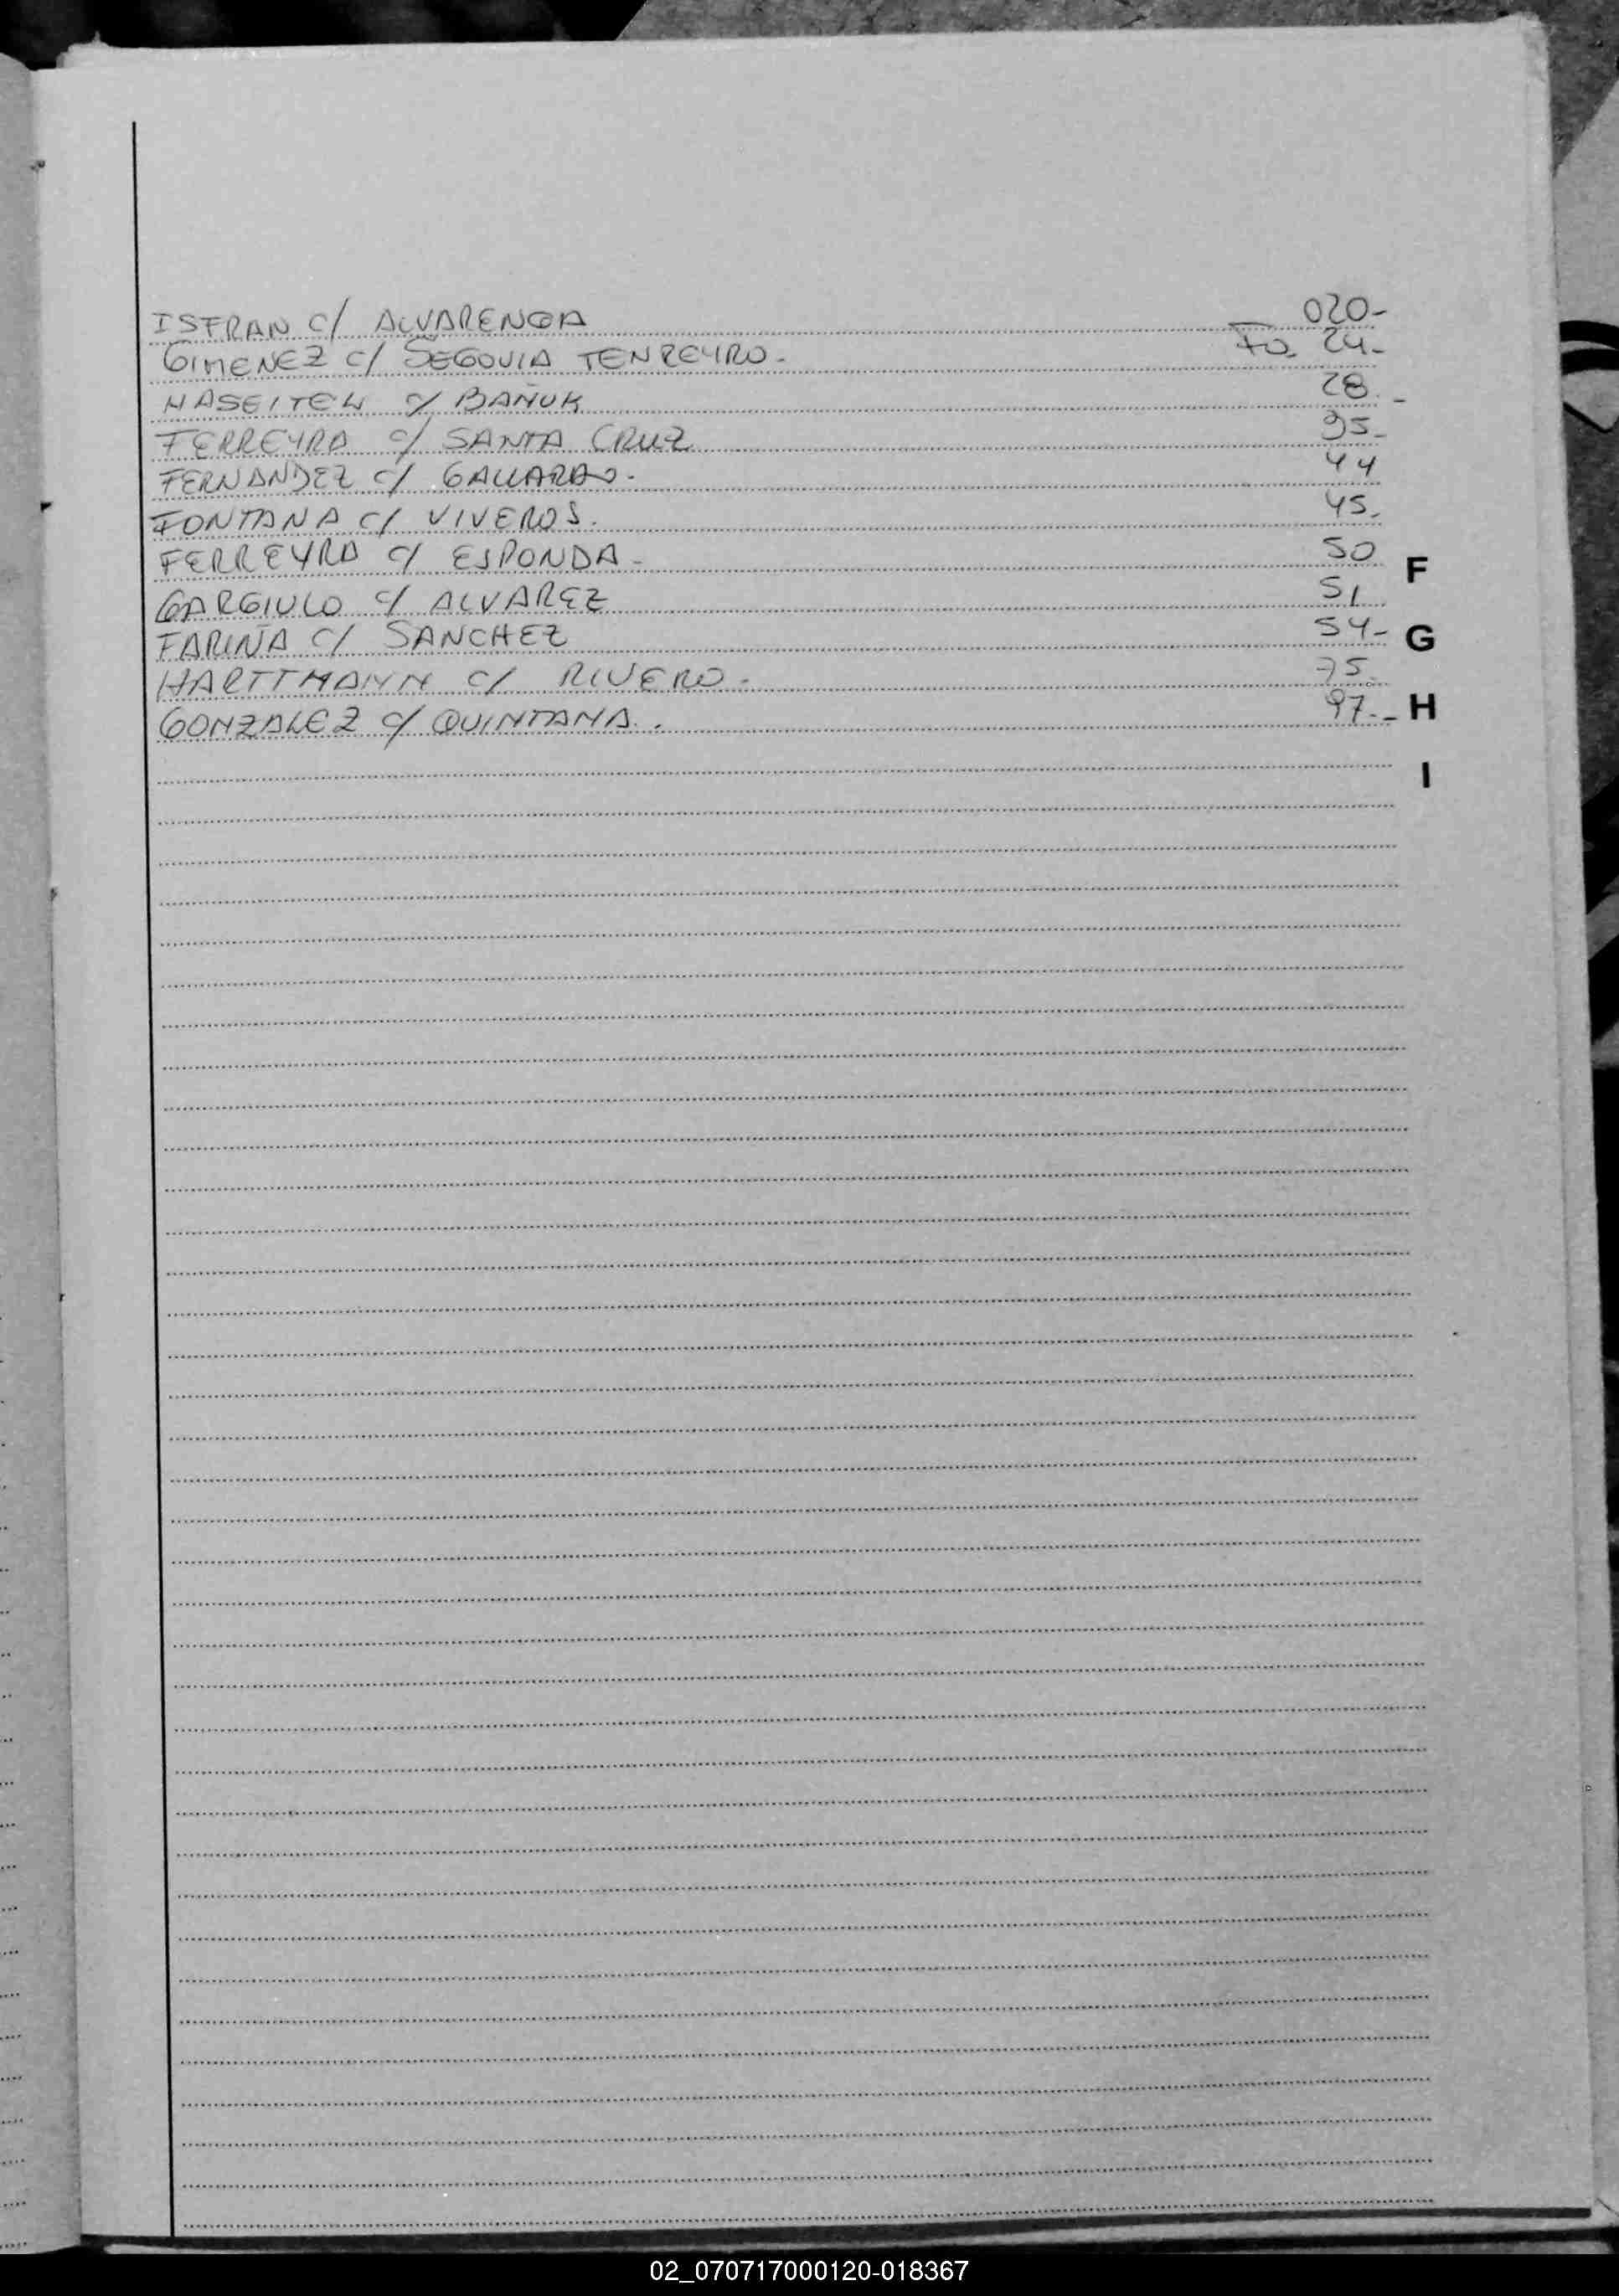 ISFRAN C/ ALVARENGA 020-
GIMENEZ C/ SEGOVIA TENREYRO. Fo. 24-
C/ BAÑUK 28.-
FERREYRA C/ SANTA CRUZ 35-
FERNANDEZ C/ GALLARDO. 44
FONTANA C/ VIVEROS. 45.
FERREYRA C/ ESPONDA. 50
F
GARGIULO C/ ALVAREZ 51
FARIÑA C/ SANCHEZ 54-
G
HARTTMANN C/ RIVERO. 75.
GONZALEZ C/ QUINTANA. 97.-
H
I
02_070717000120-018367